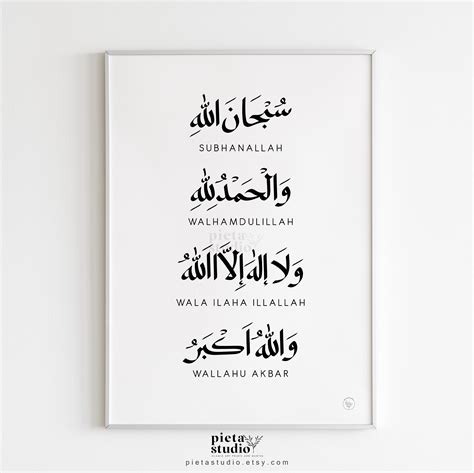 سُبْحَانَ اللّٰهِ
SUBHANALLAH
وَالْحَمْدُ لِلّٰهِ
WALHAMDULILLAH
pieta
studio
وَلَا إِلٰهَ إِلَّا اللّٰهُ
WALA ILAHA ILLALLAH
وَاللّٰهُ أَكْبَرُ
WALLAHU AKBAR
pieta
studio
pietastudio.etsy.com